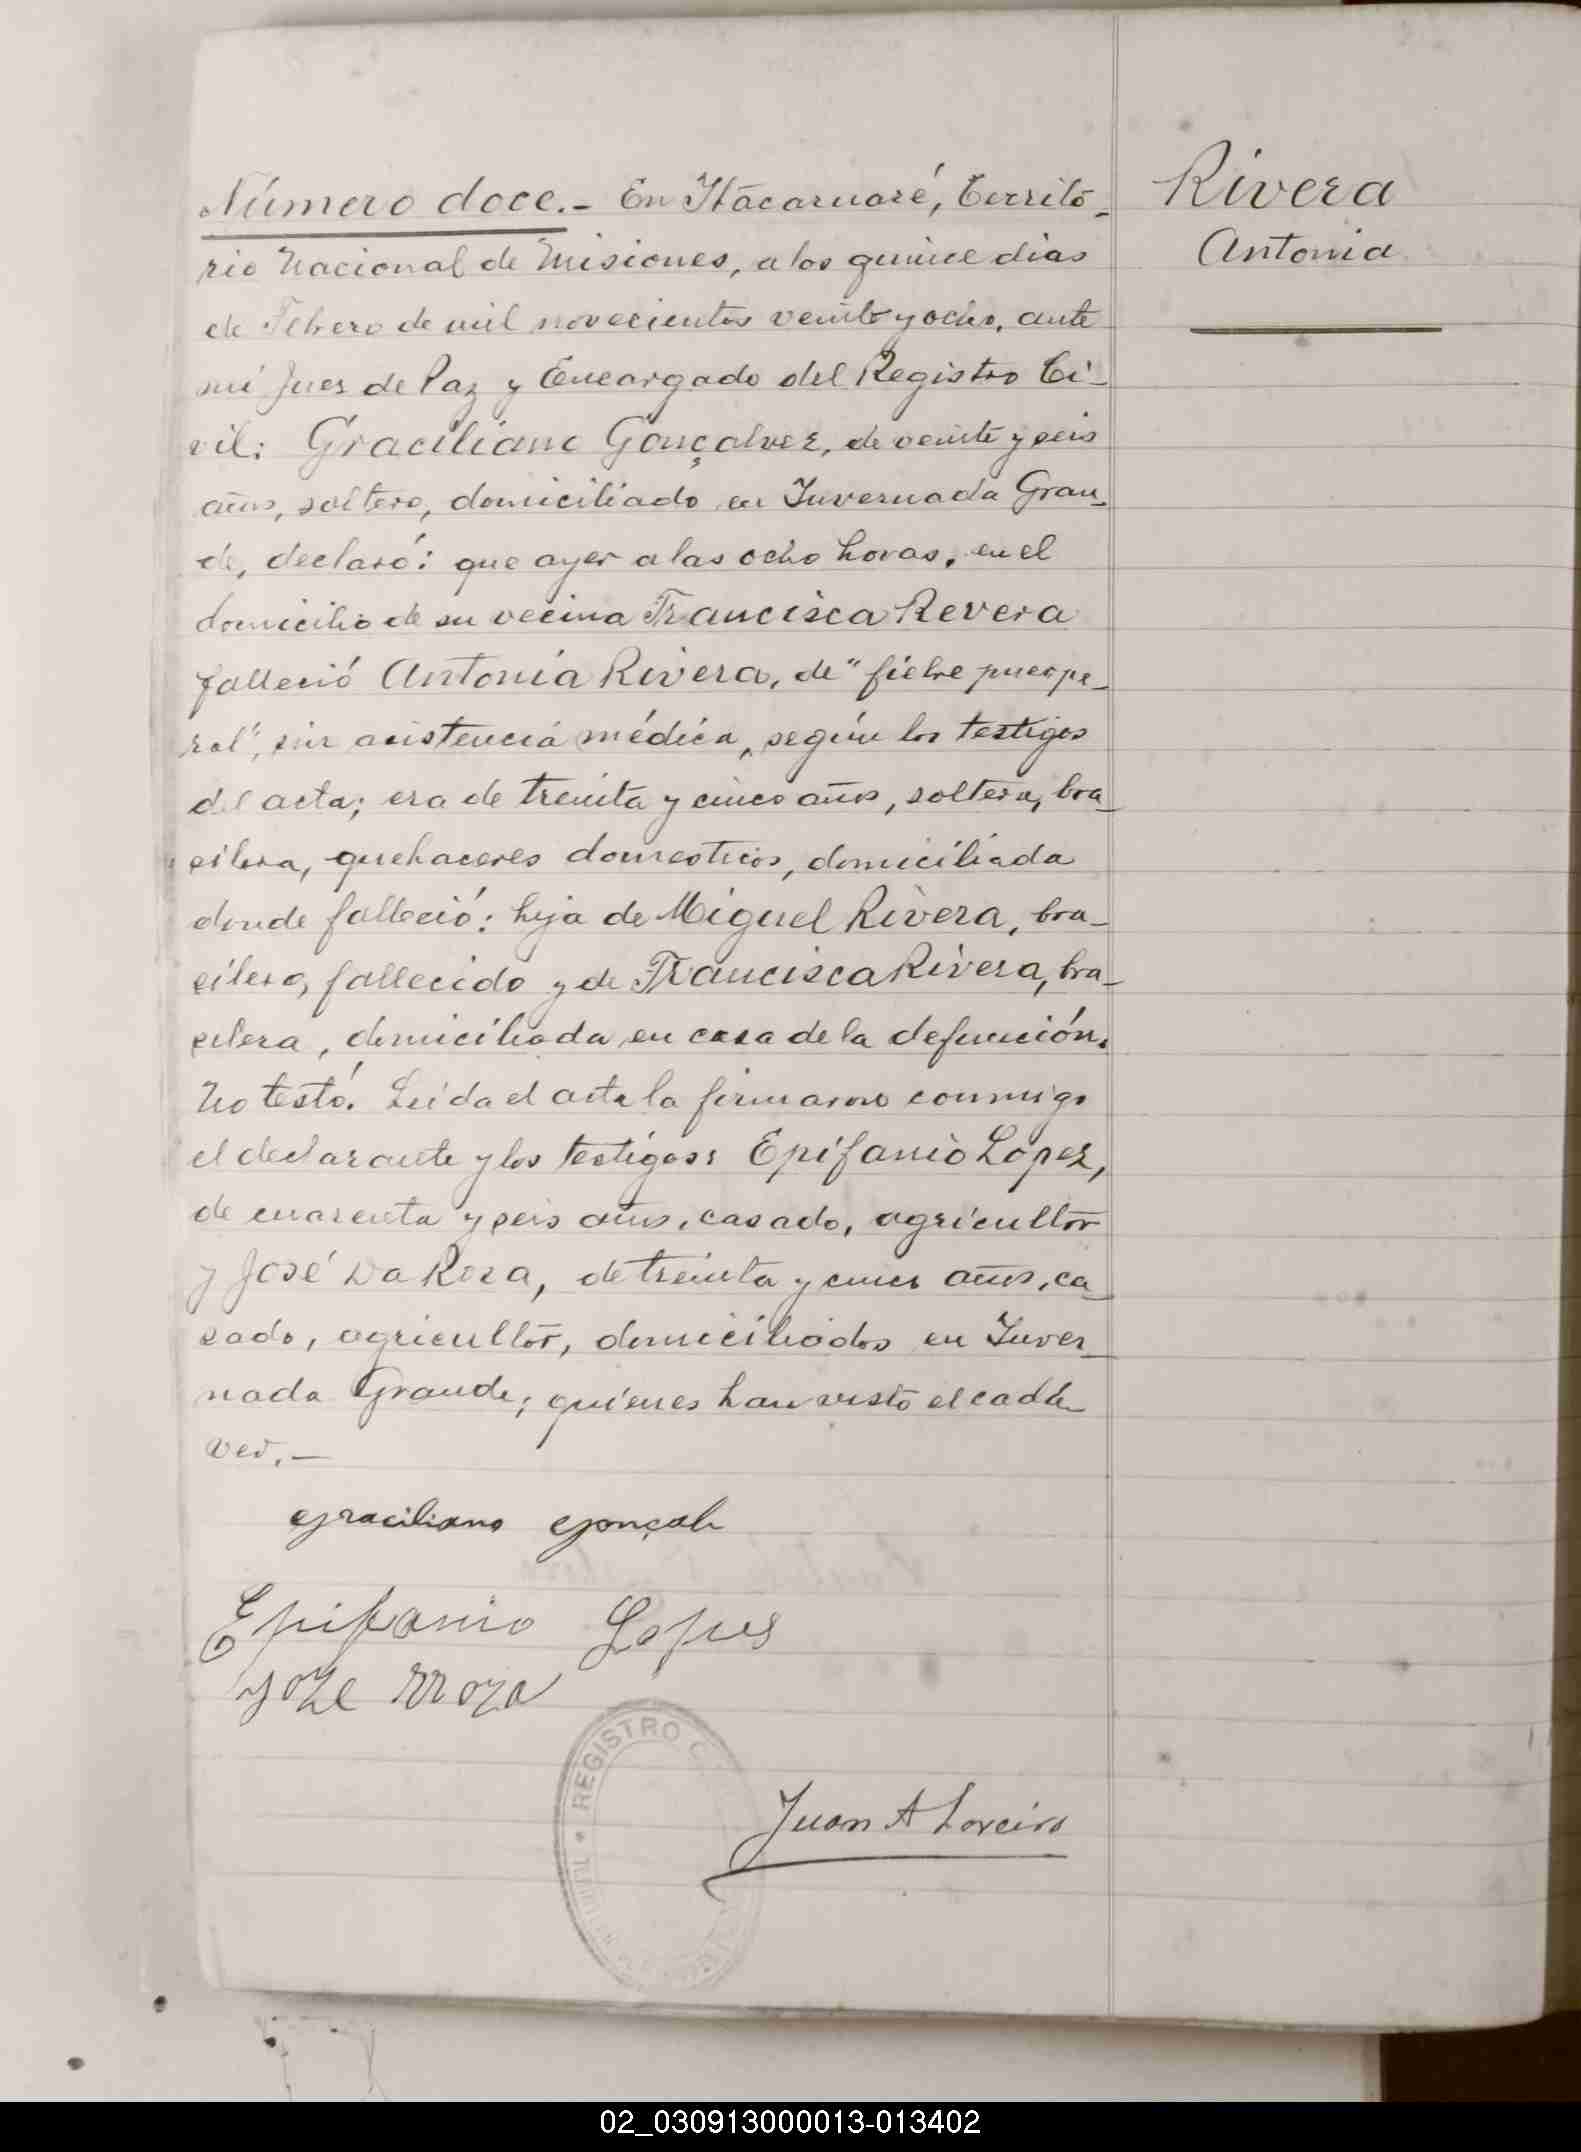 Número doce.- En Itacaruaré, Territo-
rio Nacional de Misiones, a los quince dias
de Febrero de mil novecientos veinte y ocho, ante
mi Juez de Paz y Encargado del Registro Ci-
vil: Graciliano Gonçalvez, de veinte y seis
años, soltero, domiciliado en Invernada Gran-
de, declaró: que ayer a las ocho horas, en el
domicilio de su vecina Francisca Revera
falleció Antonia Rivera, de "fiebre puerpe-
ral", sin asistencia médica, según los testigos
del acta; era de treinta y cinco años, soltera, bra-
silera, quehaceres domesticos, domiciliada
donde falleció: hija de Miguel Rivera, bra-
silero, fallecido y de Francisca Rivera, bra-
silera, domiciliada en casa de la defunción.
No testó. Leida el acta la firmaron conmigo
el declarante y los testigos: Epifanio Lopez,
de cuarenta y seis años, casado, agricultor
y José Da Roza, de treinta y cinco años, ca-
sado, agricultor, domiciliados en Inver-
nada Grande; quienes han visto el cadá-
ver.-
Rivera
Antonia
Graciliano Gonçalv
Epifanio Lopes
Joze Rroza
REGISTRO
Juan A Loreiro
02_030913000013-013402